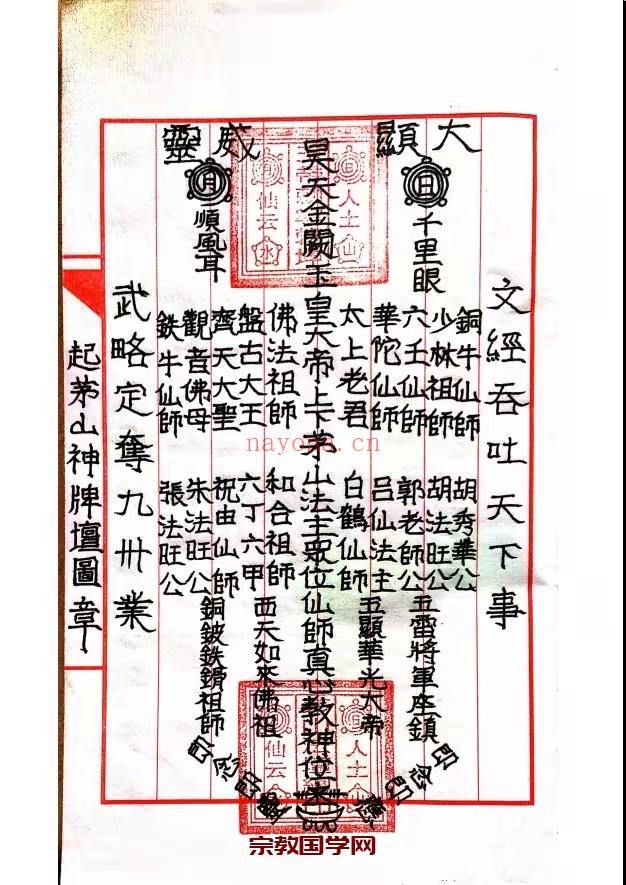 大顯威靈
日
千里眼
月
順風耳
文經吞吐天下事
銅牛仙師
少林祖師
六壬仙師
華陀仙師
太上老君
昊天金闕玉皇大帝上茅山法主眾位仙師真心教神位
佛法祖師
盤古大王
齊天大聖
觀音佛母
鉄牛仙師
胡秀華公
胡法旺公
郭老師公
呂仙法主
白鶴仙師
和合祖師
六丁六甲
祝由仙師
朱法旺公
張法旺公
五雷將軍座鎮
五顯華光大帝
西天如來佛祖
銅鈸鉄鎖祖師
武略定奪九州業
起茅山神牌壇圖章
人土山
仙云水
人土
仙云
nayona.cn
宗教国学网